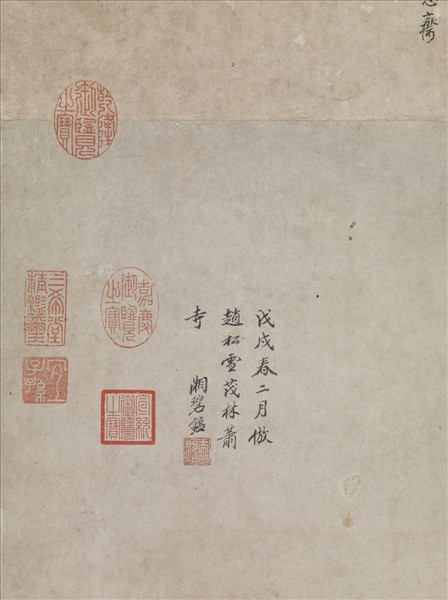 齋
戊戌春二月倣
趙松雪茂林蕭
寺
湘碧鑑
乾隆御覽之寶
嘉慶御覽之寶
宣統御覽之寶
三希堂精鑑璽
宜子孫